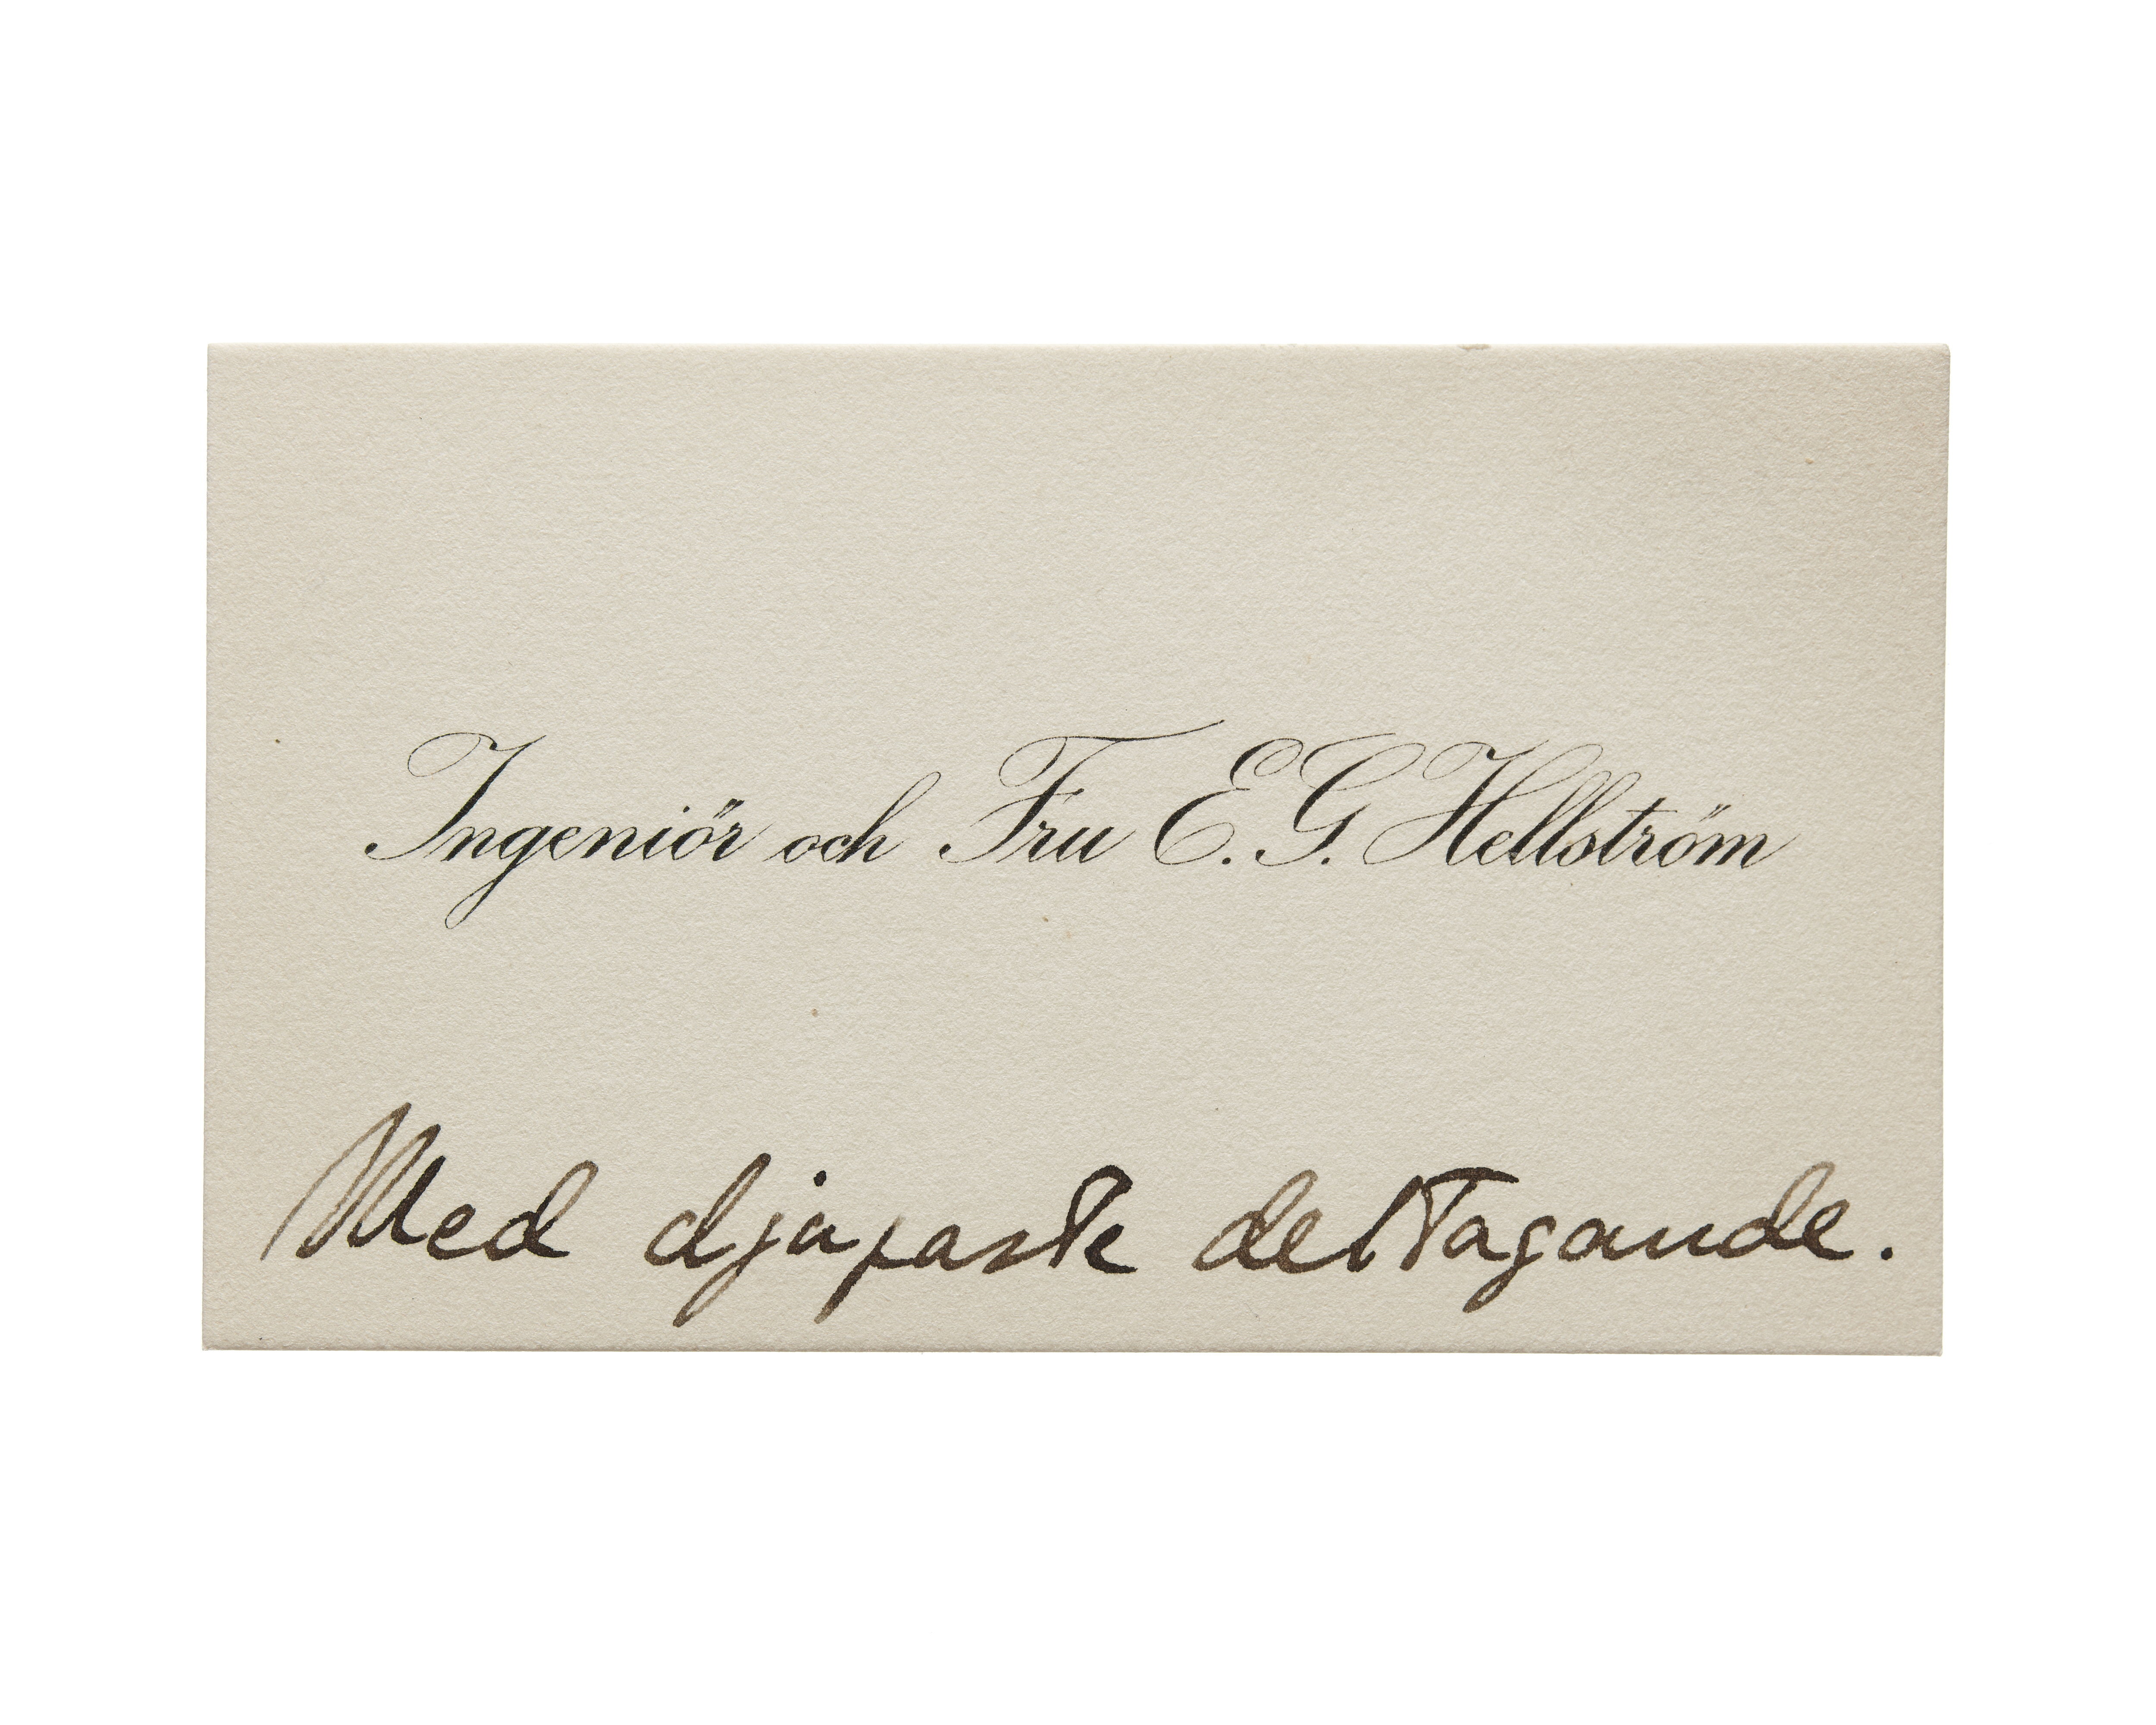 Ingeniör och Fru E. G. Hellström
Med djupaste deltagande.